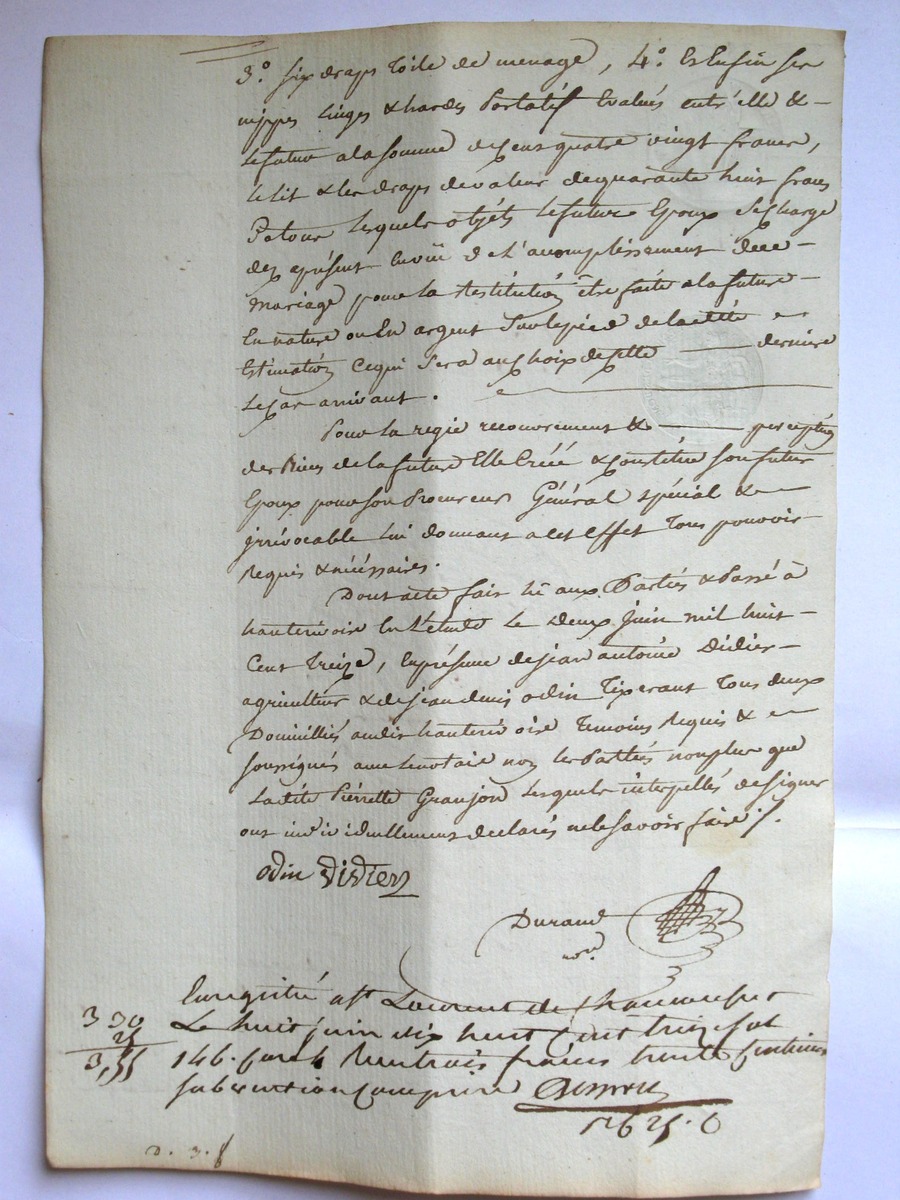 3° six draps toile de menage, 4° Et Enfin ses
nippes Linges & hardes Portatif Evalués entr'elle & –
le futur a la somme de Cent quatre vingt francs,
le lit & les draps de valeur de quarante huit francs
De tous lesquels objéts le future Epoux se charge
dez aprésent En vüe de L'acomplissement de ce –
mariage pour La Restitution être faite a la future –
En nature ou En argent Sur le pied de la dite
Estimation Ce qui Sera au choix de cette derniere
le Cas arrivant.
Pour la regie recouvrement & perception
des Biens de la future Elle Créé & Constitue son futur
Epoux pour son Procureur Général spécial &
jrrévocable Lui donnant a cet effet Tous pouvoir
Requis & nécéssaires.
Dont acte fait lû aux Partiés & Passé à
hauterivoire En L'etude Le deux Juin mil huit –
Cent treize, En présence de jean antoine Didier –
agriculteur & de jean denis odin Tixerant Tous deux
Domiciliés audit hauterivoire Temoins Requis &
soussignés avec le notaire non les Partiés non plus que
La dite Piérrette Granjon Lesquels interpellés de signer
ont individuellement declarés ne le savoir faire ./.
odin Didier
Durand
nore
Enregistré a St Laurent de Chamousset
3 30 Le huit juin dix huit Cent treize fol
25
3,55 146. Case 4 Reçu trois francs trente Centimes
subvention Comprise
D. 3. f